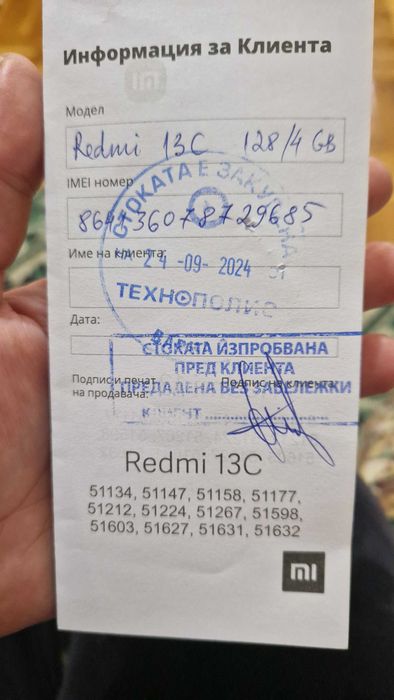 Информация за Клиента
Модел
Redmi 13C 128/4 GB
IMEI номер
СТОКАТА Е ЗАКУПЕНА
864736078729685
Име на клиента:
НА 24 -09- 2024 ОТ
ТЕХНОПОЛИС
Дата:
ВАРНА
СТОКАТА ИЗПРОБВАНА
ПРЕД КЛИЕНТА
Подпис и печат
на продавача:
Подпис на клиента:
ПРЕДАДЕНА БЕЗ ЗАБЕЛЕЖКИ
КЛИЕНТ
Redmi 13C
51134, 51147, 51158, 51177,
51212, 51224, 51267, 51598,
51603, 51627, 51631, 51632
mi